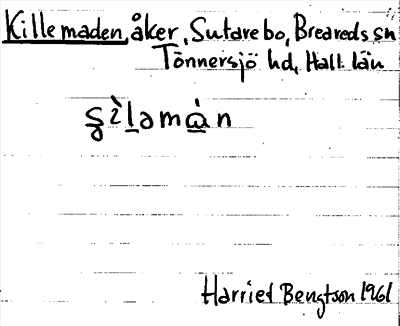 Killemaden, åker, Sutarebo, Breareds sn
Tönnersjö hd, Hall. län
ʂìləmàn
Harriet Bengtson 1961